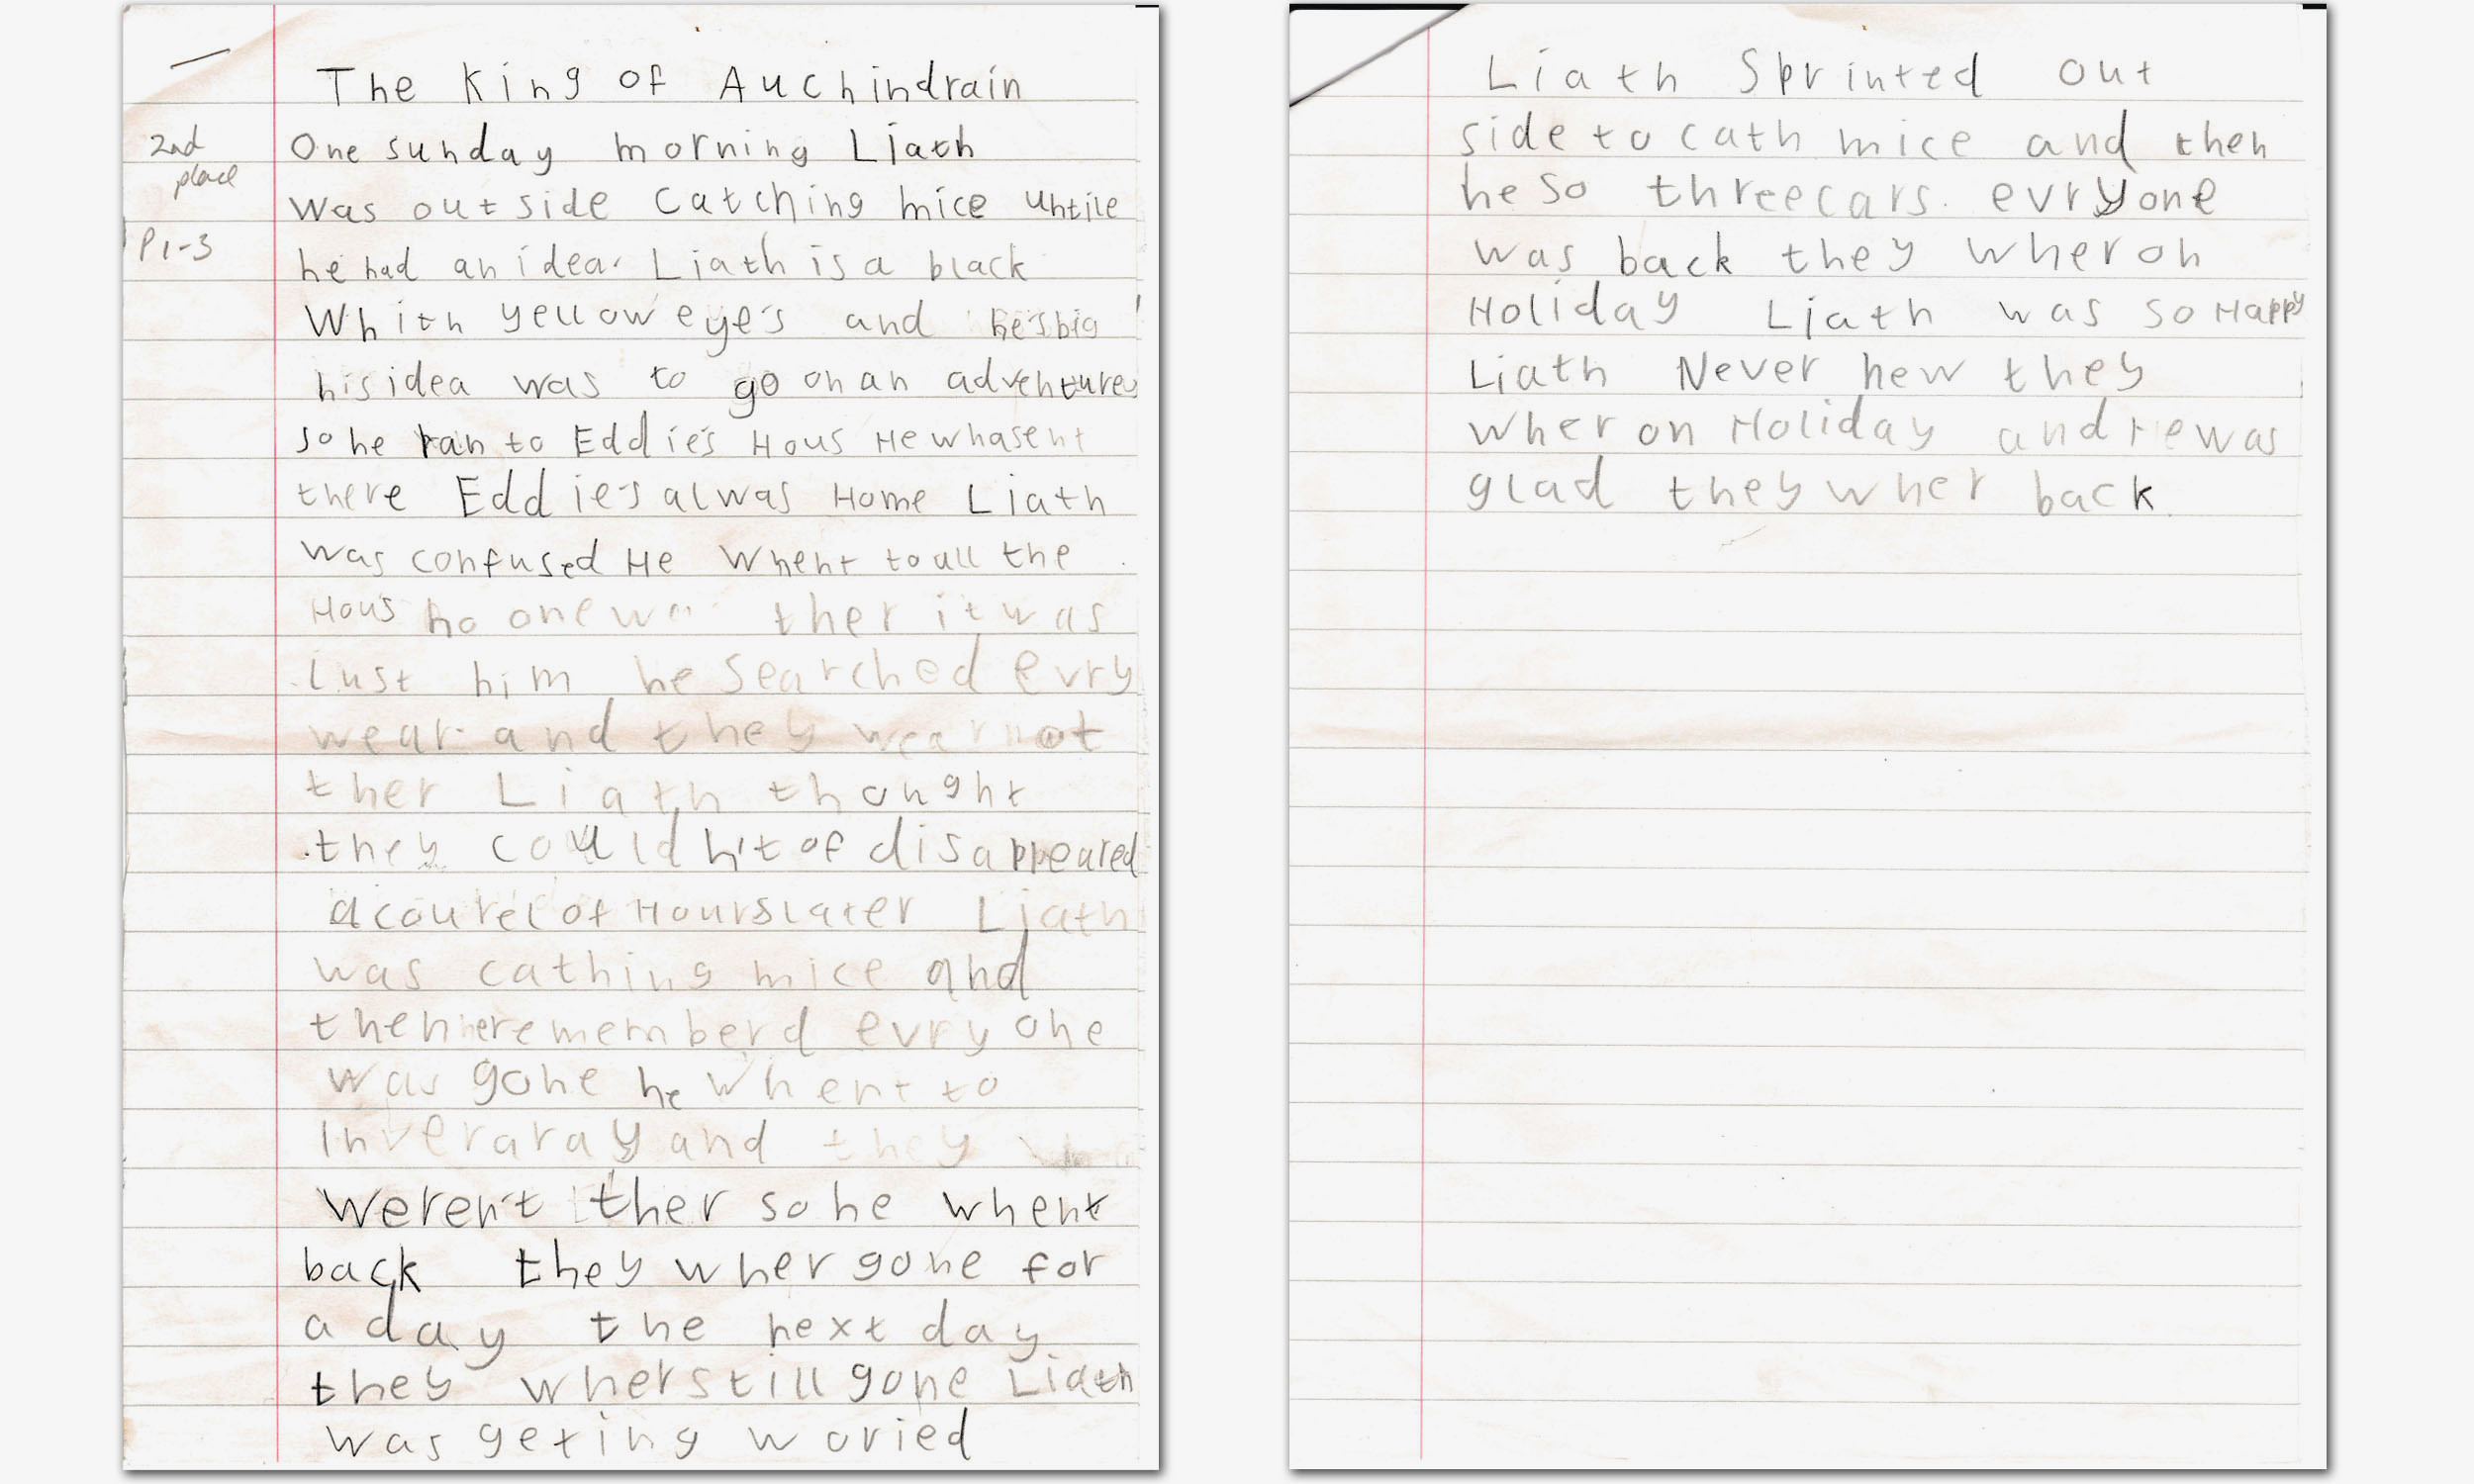 The King of Auchindrain
2nd
place
P1-3
One sunday morning Liath
was outside catching mice untile
he had an idea. Liath is a black
Whith yellow eye's and he's big
his idea was to go on an adventure
so he ran to Eddie's Hous He whasent
there Eddie's alwas Home Liath
was confused He Whent to all the
Hous no one wa ther it was
Just him he searched evry
wear and they wear not
ther Liath thought
they could n't of disappeared
a courel of Hours later Liath
was cathing mice and
then he rememberd evry one
was gone he whent to
Inveraray and they
weren't ther so he whent
back they wher gone for
a day the next day
they wher still gone Liath
was geting woried
Liath Sprinted out
side to cath mice and then
he so three cars. evryone
was back they wher on
Holiday Liath was so Happy
Liath Never new they
wher on Holiday and He was
glad they wher back.